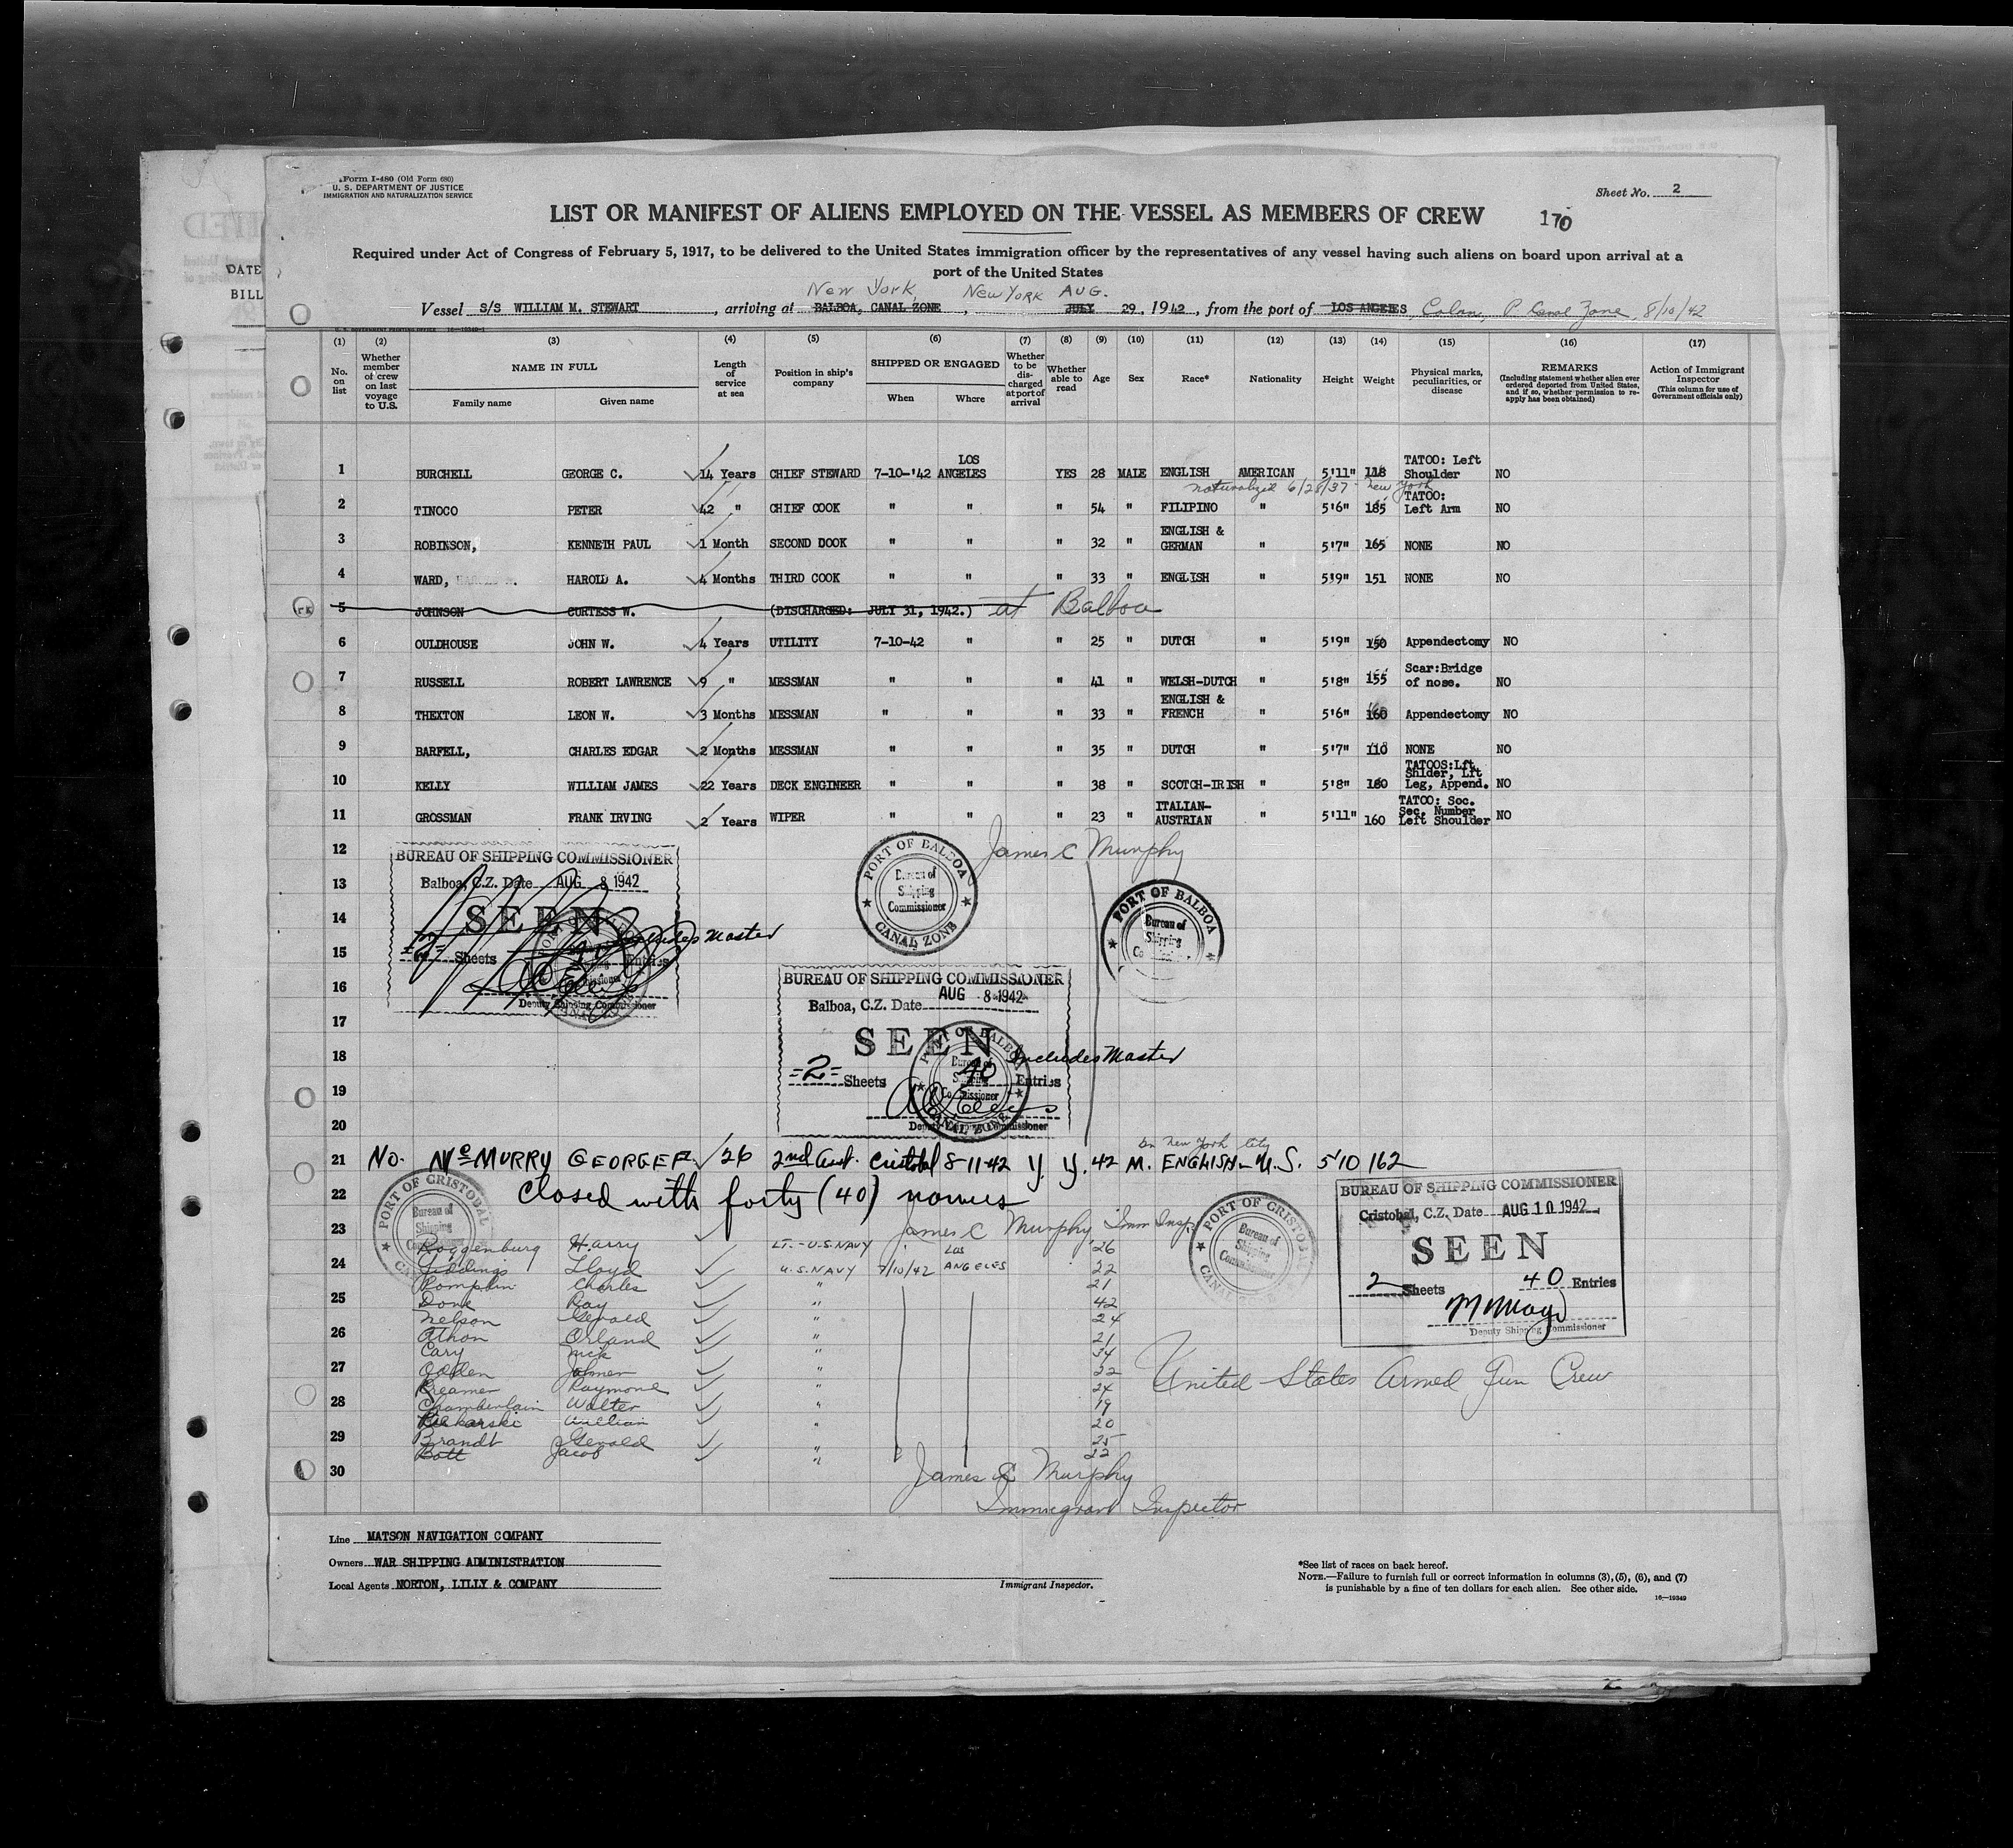 Form I-480 (Old Form 680)
U. S. DEPARTMENT OF JUSTICE
IMMIGRATION AND NATURALIZATION SERVICE
Sheet No. 2
LIST OR MANIFEST OF ALIENS EMPLOYED ON THE VESSEL AS MEMBERS OF CREW
170
Required under Act of Congress of February 5, 1917, to be delivered to the United States immigration officer by the representatives of any vessel having such aliens on board upon arrival at a
port of the United States
DATE
BILL
New York, New York AUG.
Vessel S/S WILLIAM M. STEWART, arriving at BALBOA, CANAL ZONE, JULY 29, 1942, from the port of LOS ANGELES Colon, P Canal Zone, 8/10/42
(1) (2) (3) (4) (5) (6) (7) (8) (9) (10) (11) (12) (13) (14) (15) (16) (17)
No. on list
Whether member of crew on last voyage to U.S.
NAME IN FULL
Family name Given name
Length of service at sea
Position in ship's company
SHIPPED OR ENGAGED
When Where
Whether to be discharged at port of arrival
Whether able to read
Age
Sex
Race*
Nationality
Height
Weight
Physical marks, peculiarities, or disease
REMARKS
(Including statement whether alien ever ordered deported from United States, and if so, whether permission to reapply has been obtained)
Action of Immigrant Inspector
(This column for use of Government officials only)
1 BURCHELL GEORGE C. 14 Years CHIEF STEWARD 7-10-'42 LOS ANGELES YES 28 MALE ENGLISH AMERICAN 5'11" 118 TATOO: Left Shoulder NO
naturalized 6/28/37 - New York
2 TINOCO PETER 42 " CHIEF COOK " " " 54 " FILIPINO " 5'6" 185 TATOO: Left Arm NO
3 ROBINSON, KENNETH PAUL 1 Month SECOND DOOK " " " 32 " ENGLISH & GERMAN " 5'7" 165 NONE NO
4 WARD, HAROLD A. 4 Months THIRD COOK " " " 33 " ENGLISH " 5'9" 151 NONE NO
5 JOHNSON CURTESS W. (DISCHARGED: JULY 31, 1942.) at Balboa
6 OULDHOUSE JOHN W. 4 Years UTILITY 7-10-42 " " 25 " DUTCH " 5'9" 150 Appendectomy NO
7 RUSSELL ROBERT LAWRENCE 9 " MESSMAN " " " 41 " WELSH-DUTCH " 5'8" 155 Scar:Bridge of nose. NO
8 THEXTON LEON W. 3 Months MESSMAN " " " 33 " ENGLISH & FRENCH " 5'6" 160 Appendectomy NO
9 BARFELL, CHARLES EDGAR 2 Months MESSMAN " " " 35 " DUTCH " 5'7" 110 NONE NO
10 KELLY WILLIAM JAMES 22 Years DECK ENGINEER " " " 38 " SCOTCH-IRISH " 5'8" 180 TATOOS:Lft Shlder, Lft Leg, Append. NO
11 GROSSMAN FRANK IRVING 2 Years WIPER " " " 23 " ITALIAN-AUSTRIAN " 5'11" 160 TATOO: Soc. Sec. Number Left Shoulder NO
12 James C Murphy
13
14
15
16
17
18
19
20
BUREAU OF SHIPPING COMMISSIONER
Balboa, C.Z. Date AUG 8 1942
SEEN
=2= Sheets Entries includes Master
Deputy Shipping Commissioner
PORT OF BALBOA
Bureau of Shipping Commissioner
CANAL ZONE
PORT OF BALBOA
Bureau of Shipping Commissioner
BUREAU OF SHIPPING COMMISSIONER
Balboa, C.Z. Date AUG 8 1942
SEEN
=2= Sheets 40 Entries includes Master
Deputy Shipping Commissioner
PORT OF BALBOA
Bureau of Shipping Commissioner
CANAL ZONE
In New York City
21 No. McMURRY GEORGE F. 26 2nd Asst. Cristobal 8-11-42 Y. Y. 42 M. ENGLISH - U.S. 5'10 162
22 Closed with forty (40) names
23 James C Murphy Imm Insp.
PORT OF CRISTOBAL
Bureau of Shipping Commissioner
PORT OF CRISTOBAL
Bureau of Shipping Commissioner
CANAL ZONE
BUREAU OF SHIPPING COMMISSIONER
Cristobal, C.Z. Date AUG 10 1942
SEEN
2 Sheets 40 Entries
Deputy Shipping Commissioner
Roggenburg Harry LT.-U.S.NAVY 26
24 Giddings Lloyd U.S.NAVY 7/10/42 LOS ANGELES 22
Charles " 21
25 Done Ray " 42
Nelson Gerald " 24
26 Athon Orland " 21
Cary Nick " 34
27 Odden Johner " 22
Kreamer Raymond " 24
28 Chamberlain Walter " 19
William " 20
29 Brandt Gerald " 25
Bott Jacob " 22
30
United States Armed Gun Crew
James C Murphy
Immigrant Inspector
Line MATSON NAVIGATION COMPANY
Owners WAR SHIPPING ADMINISTRATION
Local Agents NORTON, LILLY & COMPANY
Immigrant Inspector.
*See list of races on back hereof.
NOTE.—Failure to furnish full or correct information in columns (3), (5), (6), and (7)
is punishable by a fine of ten dollars for each alien. See other side.
16—19349